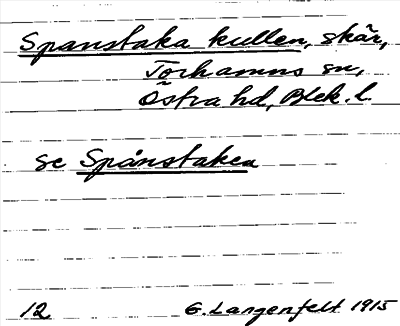 Spanstaka kullen, skär,
Torhamns sn,
Östra hd, Blek. l.
se Spånstaken
12 G. Langenfelt 1915